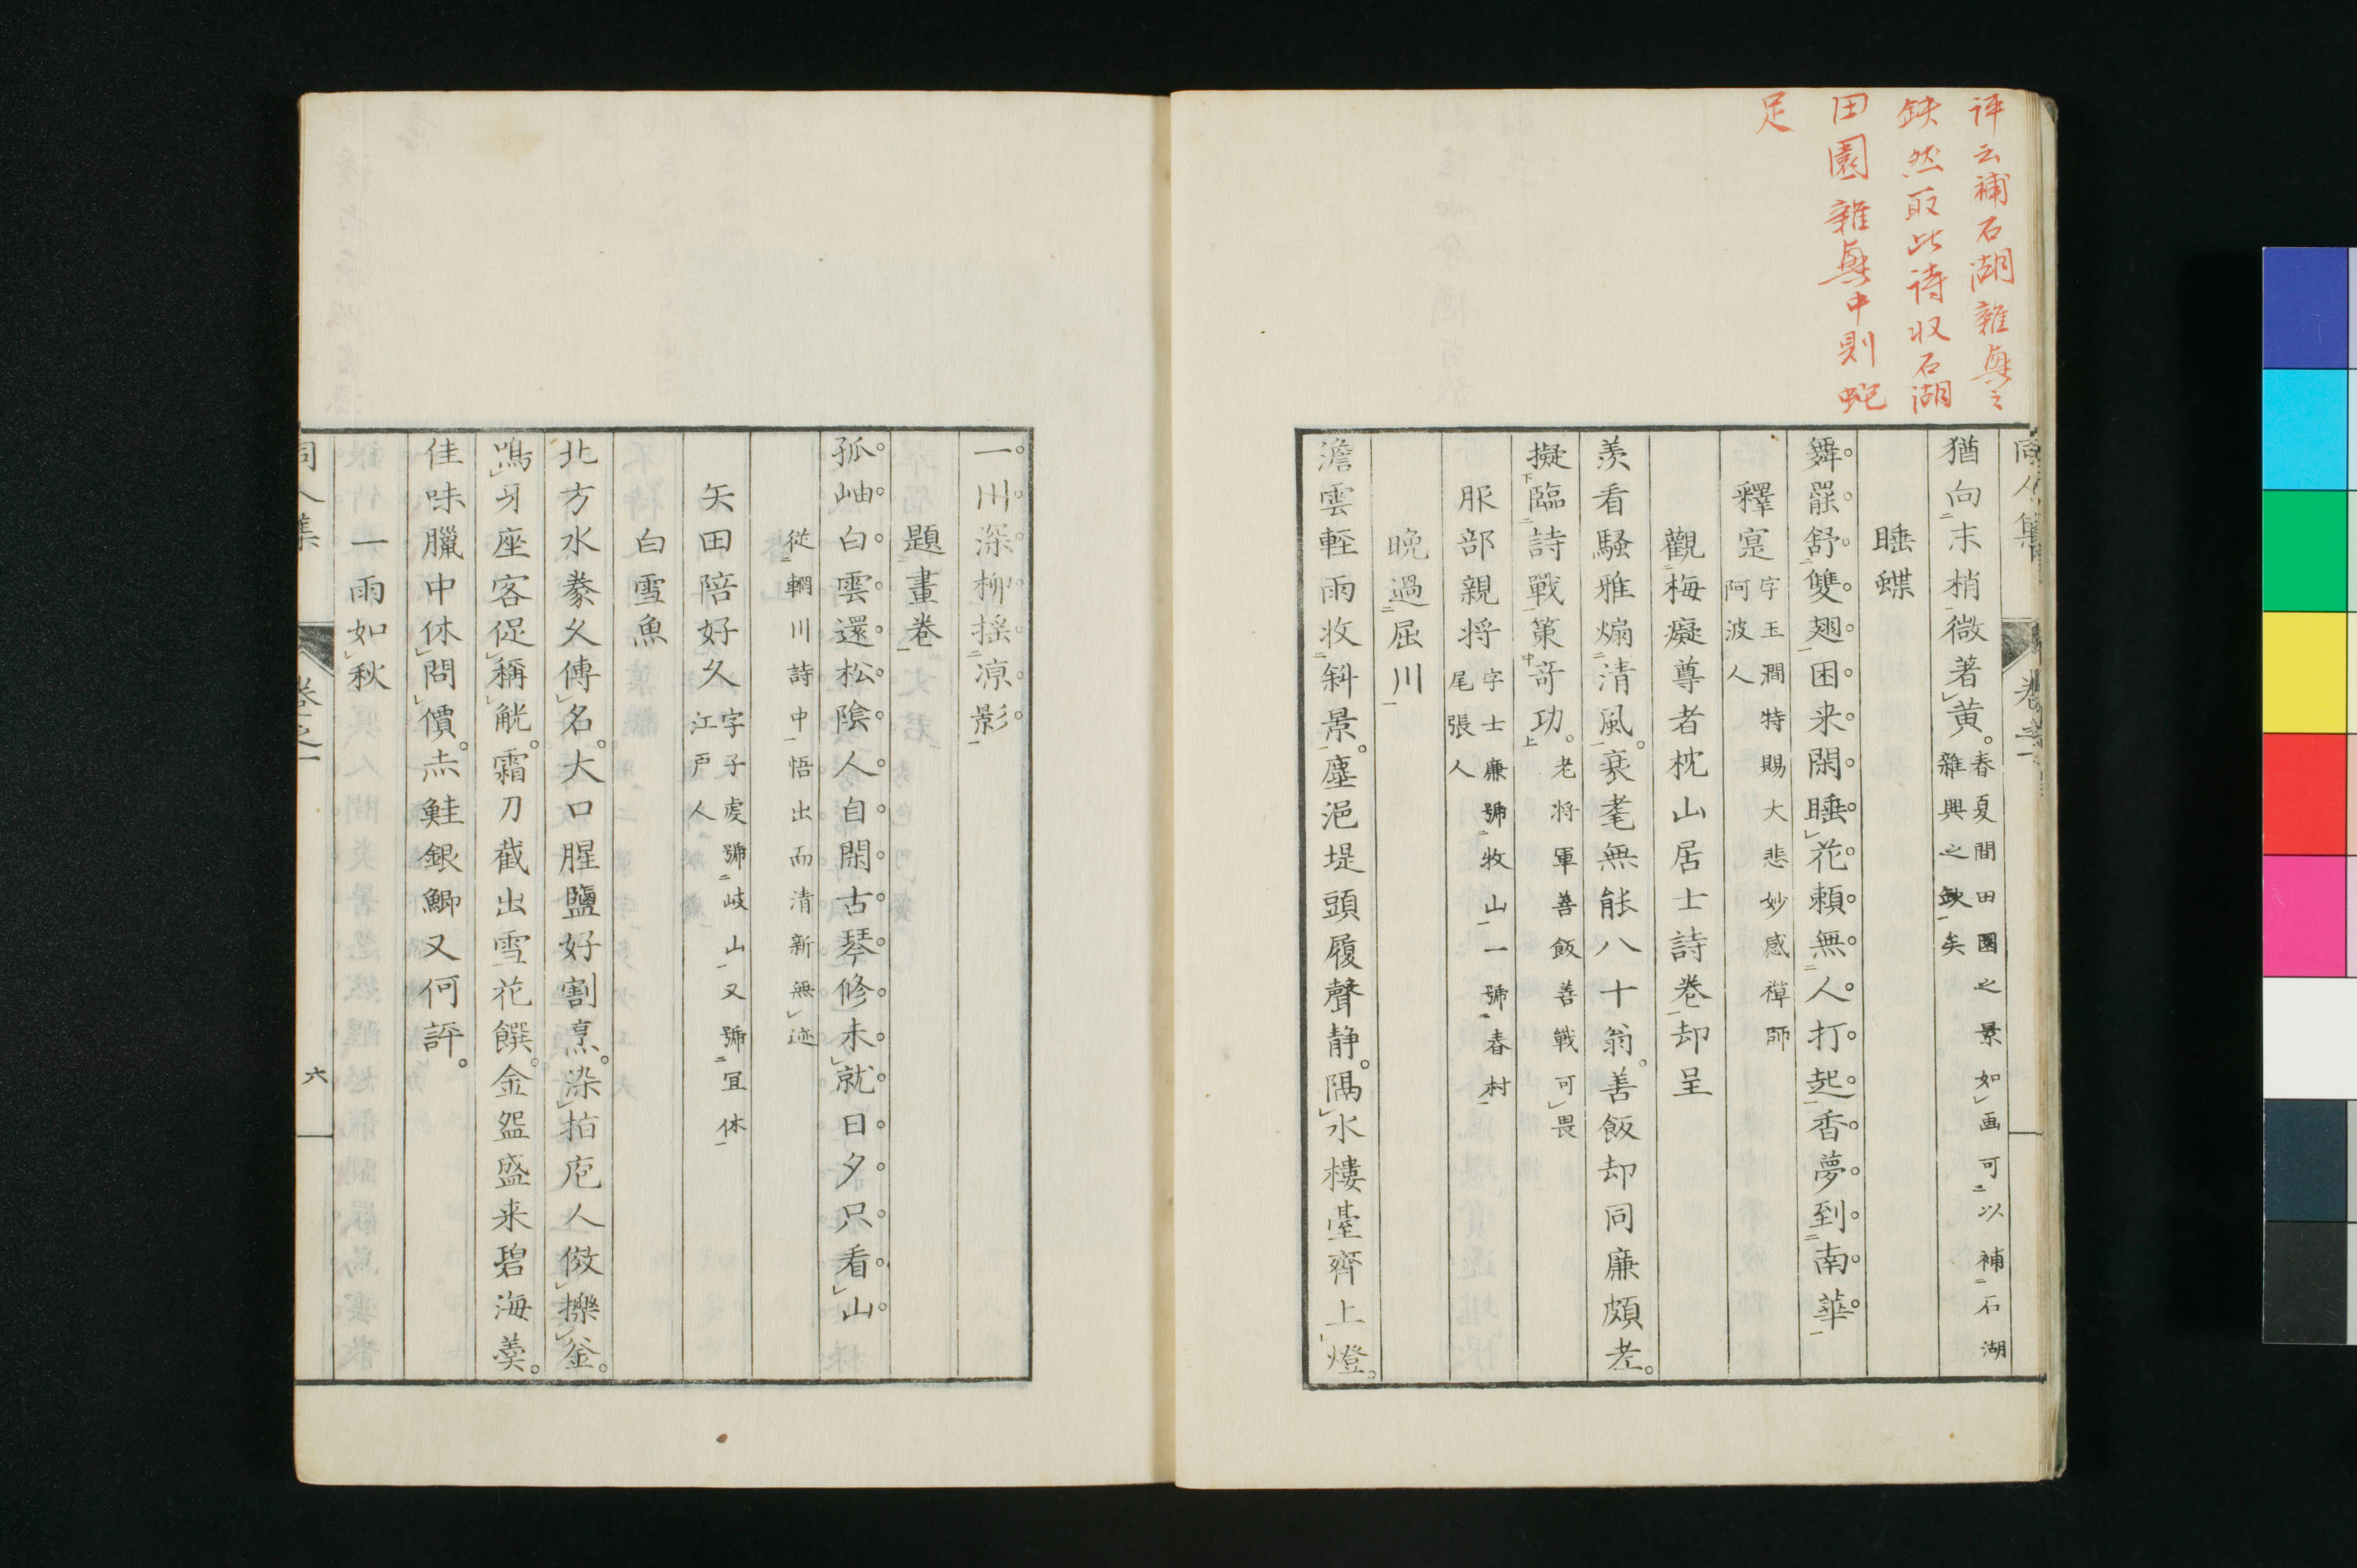 評云補石湖雜興之
缺然取此詩収石湖
田園雜興中則蛇
足
同人集
卷之一
猶向末梢微著黄。
春夏間田園之景如画可以補石湖
雜興之缺矣
睡蝶
舞罷舒雙翅困来閑睡花頼無人打起香夢到南華
釋寔
字玉澗特賜大悲妙感禅師
阿波人
觀梅癡尊者枕山居士詩卷却呈
羨看騷雅煽清風。衰耄無能八十翁。善飯却同廉頗老。
擬臨詩戰策竒功。
老将軍善飯善戦可畏
服部親将
字士廉號牧山一號春村
尾張人
晩過屈川
澹雲軽雨收斜景。塵浥堤頭履聲静。隔水樓臺齊上燈。
一川深柳揺凉影
題畫卷
孤岫白雲還松陰人自閑古琴修未就日夕只看山
従輞川詩中悟出而清新無迹
矢田陪好久
字子虔號岐山又號宜休
江戸人
白雪魚
北方水豢久傳名。大口腥鹽好割烹。染指庖人倣擽釜。
鳴牙座客促稱觥。霜刀截出雪花饌。金盌盛来碧海羹。
佳味臘中休問價。赤鮭銀鯽又何評。
一雨如秋
同人集
卷之一
六